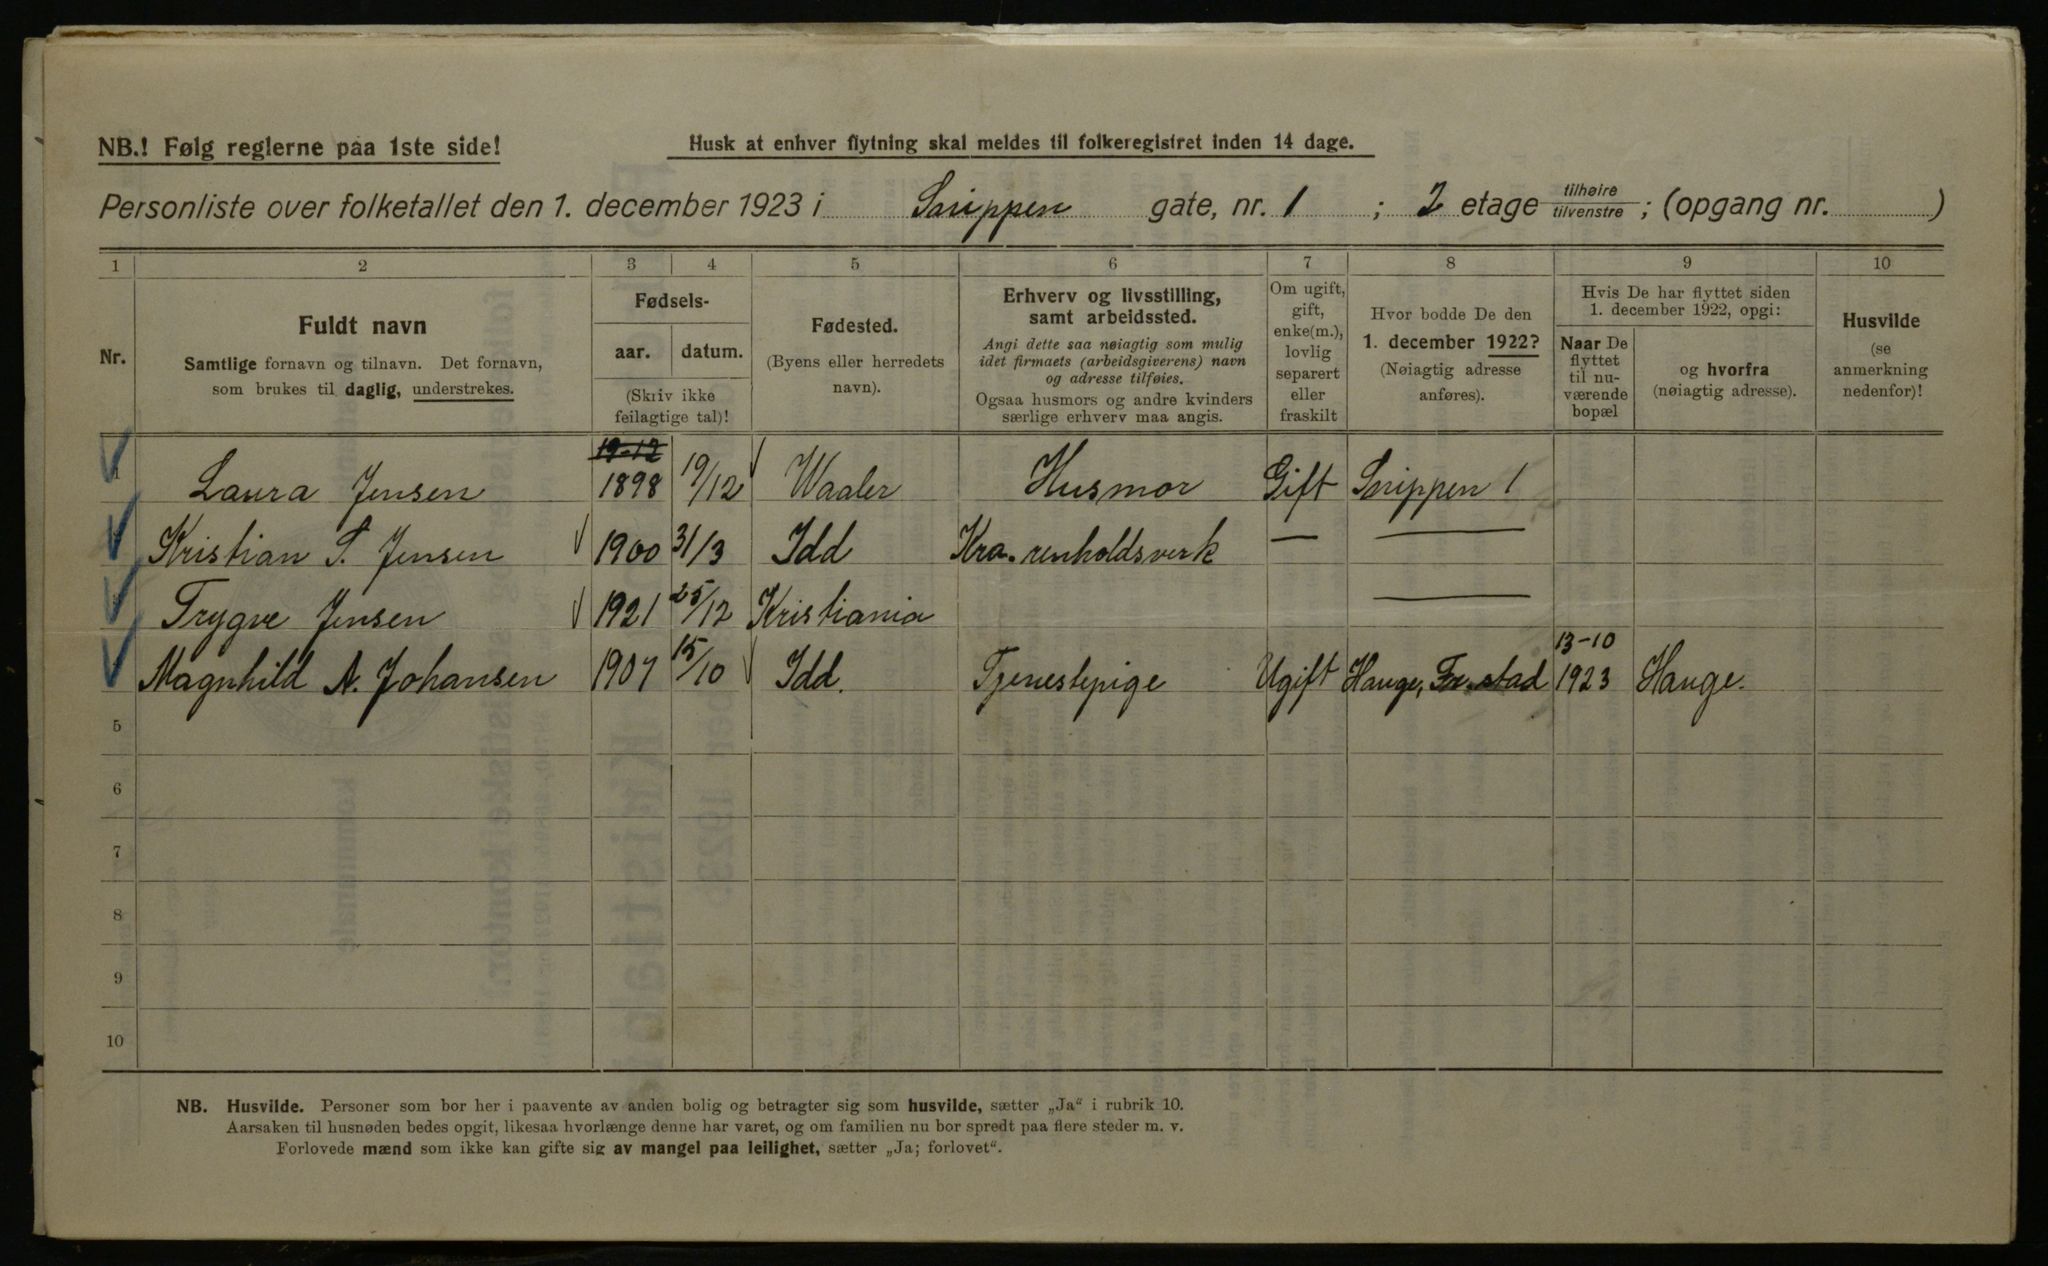 NB.! Følg reglerne paa 1ste side!
Husk at enhver flytning skal meldes til folkeregistret inden 14 dage.
Personliste over folketallet den 1. december 1923 i Snippen gate, nr. 1 ; 2 etage tilhøire tilvenstre ; (opgang nr. )
1 2 3 4 5 6 7 8 9 10
Nr.
Fuldt navn
Samtlige fornavn og tilnavn. Det fornavn,
som brukes til daglig, understrekes.
Fødsels-
aar. datum.
(Skriv ikke
feilagtige tal)!
Fødested.
(Byens eller herredets
navn).
Erhverv og livsstilling,
samt arbeidssted.
Angi dette saa nøiagtig som mulig
idet firmaets (arbeidsgiverens) navn
og adresse tilføies.
Ogsaa husmors og andre kvinders
særlige erhverv maa angis.
Om ugift,
gift,
enke(m.),
lovlig
separert
eller
fraskilt
Hvor bodde De den
1. december 1922?
(Nøiagtig adresse
anføres).
Hvis De har flyttet siden
1. december 1922, opgi:
Naar De
flyttet
til nu-
værende
bopæl
og hvorfra
(nøiagtig adresse).
Husvilde
(se
anmerkning
nedenfor)!
19-12
1 Laura Jensen 1898 19/12 Waaler Husmor Gift Snippen 1
Kristian S. Jensen 1900 31/3 Idd Kra. renholdsverk — —
Trygve Jensen 1921 25/12 Kristiania —
13-10
Magnhild N. Johansen 1907 15/10 Idd. Tjenestepige Ugift Hauge, 1923 Hauge.
5
6
7
8
9
10
NB. Husvilde. Personer som bor her i paavente av anden bolig og betragter sig som husvilde, sætter „Ja“ i rubrik 10.
Aarsaken til husnøden bedes opgit, likesaa hvorlænge denne har varet, og om familien nu bor spredt paa flere steder m. v.
Forlovede mænd som ikke kan gifte sig av mangel paa leilighet, sætter „Ja; forlovet“.